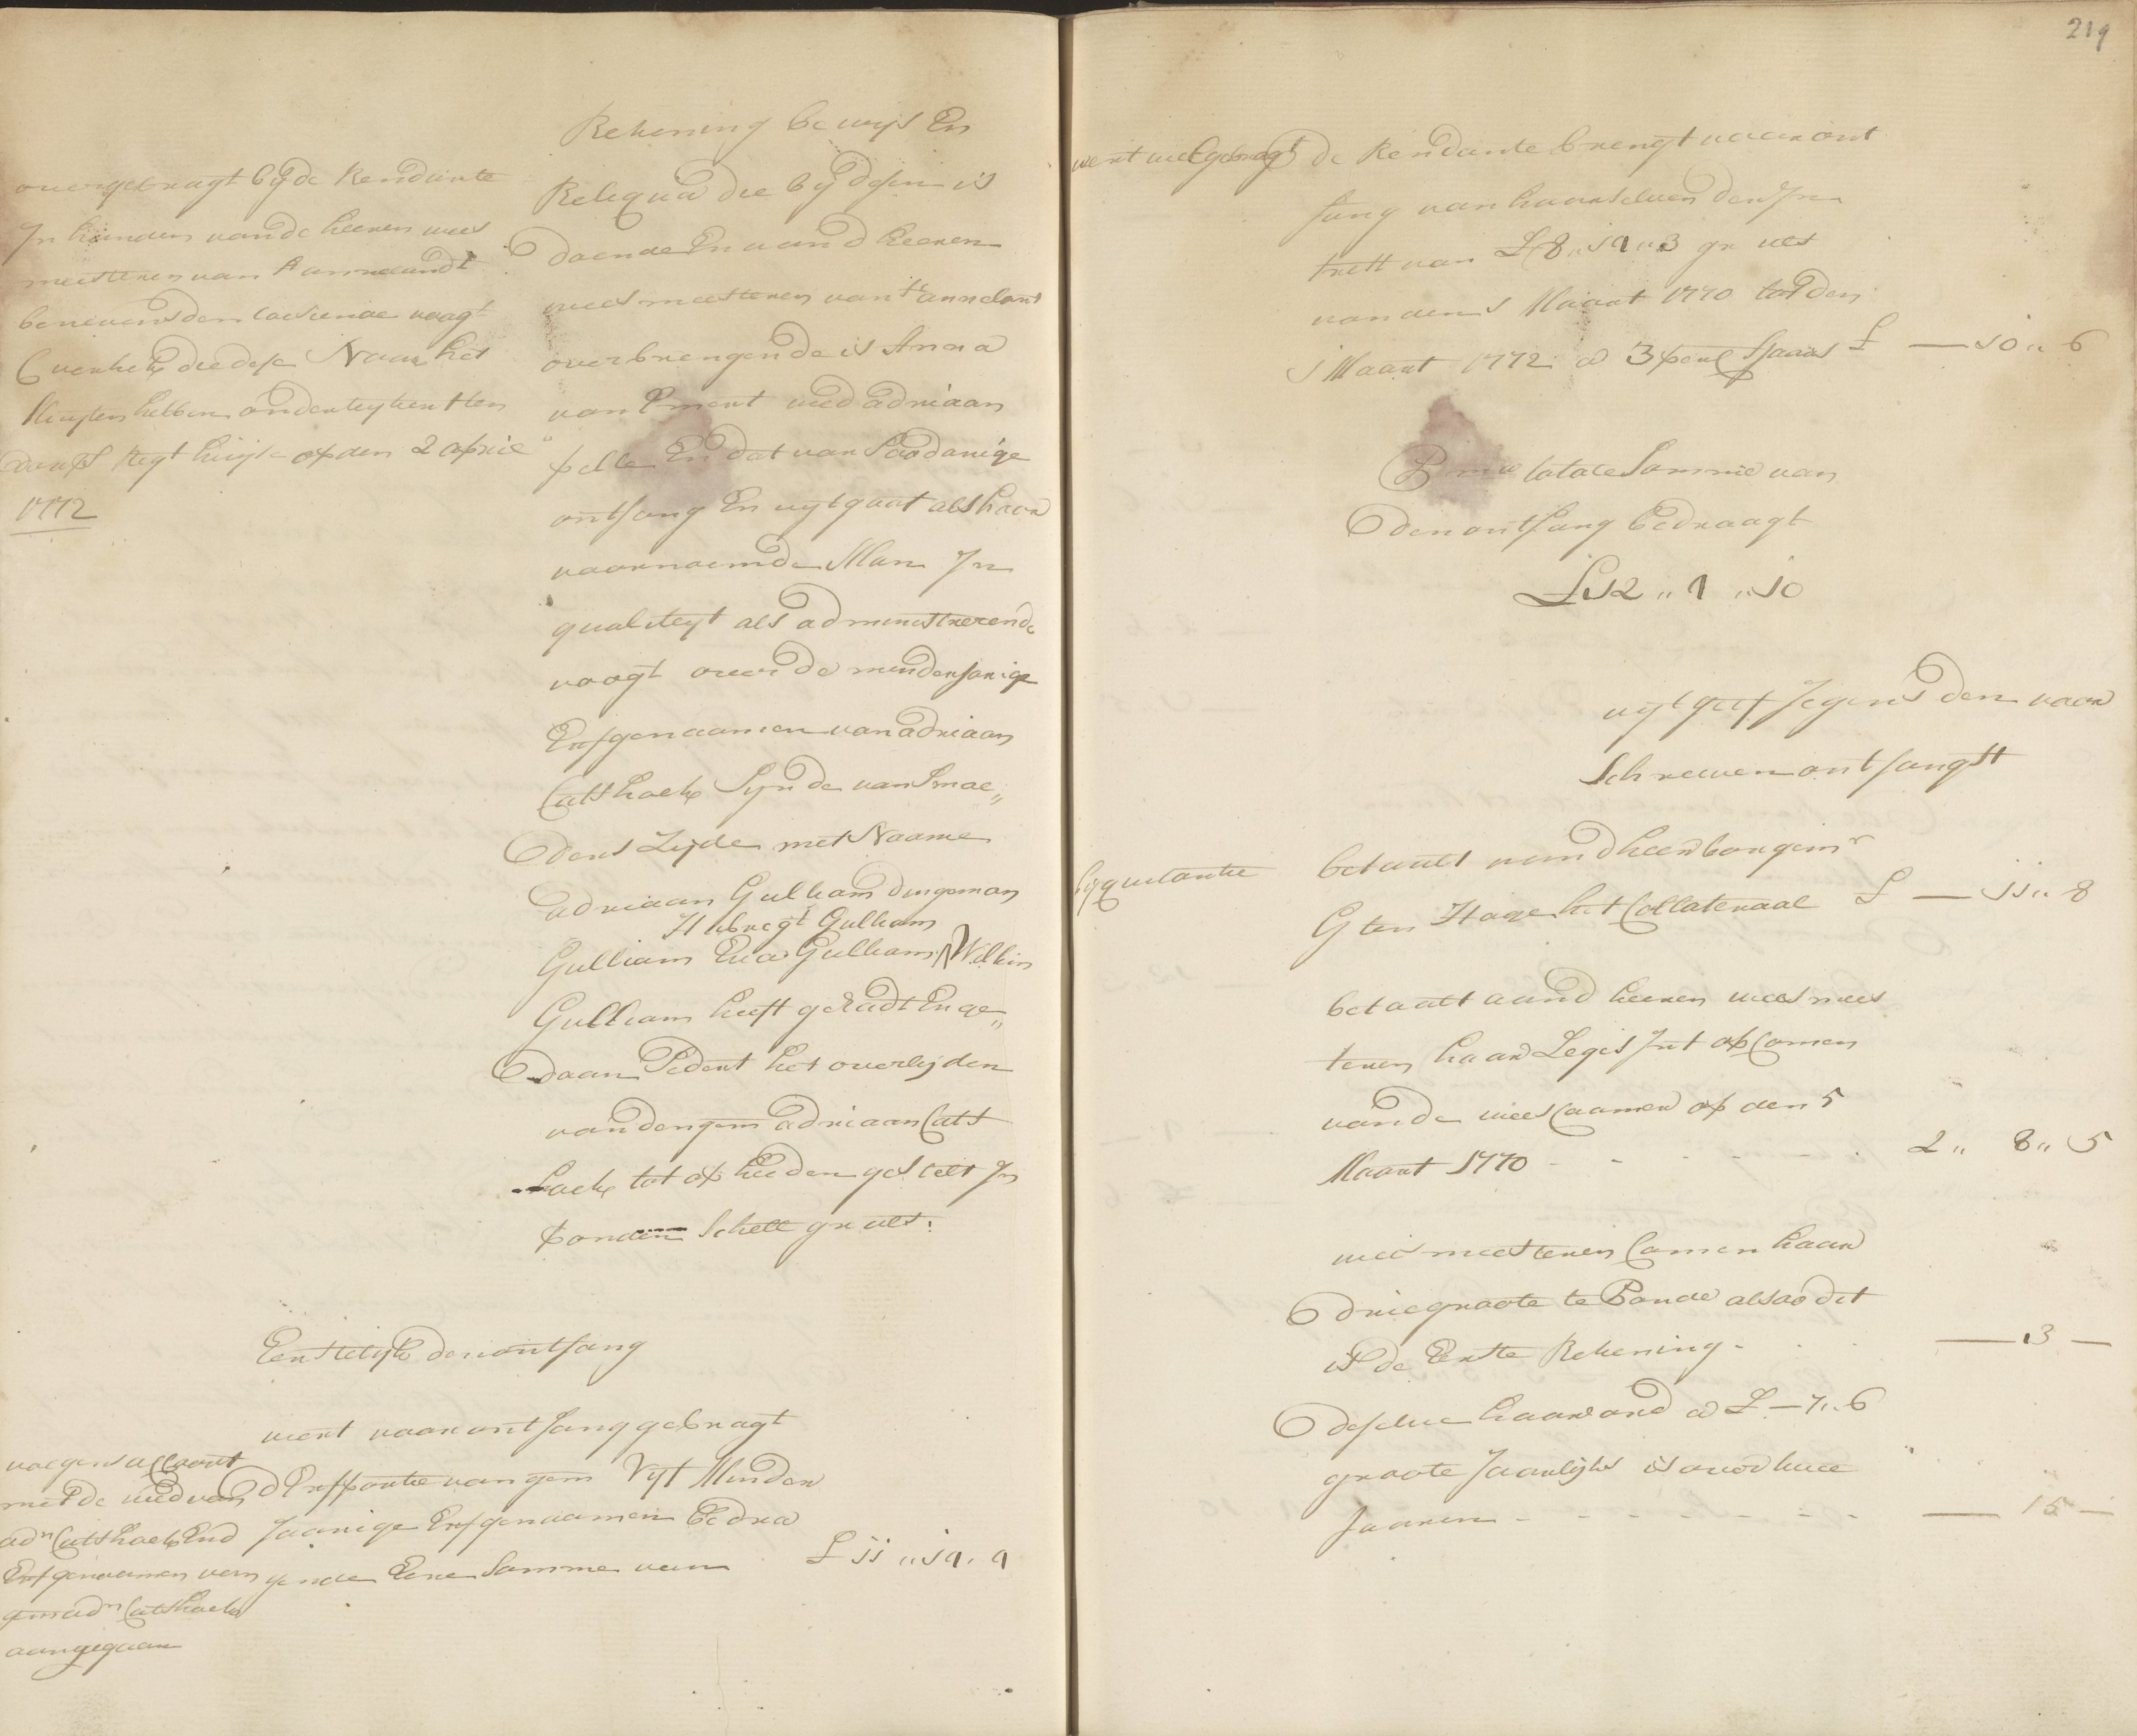 overgebragt bij de Rendante
In handen van de heeren wees
meesteren van Annelandt
benevens den toesiende voogt
C verhek die dese Naar het
sluyten hebben onderteykent ten
op den 2 april
1772
Rekening bewijs En
Reliqua die bij desen is
doende En aan d heeren
weesmeesteren van Annelant
overbrengende is Anna
van Pment wed adriaan
pelle En dat van Soodanige
ontfang En uytgaat als haar
voornoemde Man In
qualiteyt als administrerende
voogt over de minderjarige
Erfgenaamen van adriaan
Catshoek Synde van Smoe„
ders Zijde met Naame
adriaan Gulliam dingeman
Hubregt Gulliam
Gulliam Eva Gulliam Wilkin
Gulliam heeft gehadt En ge„
daan Sedert het overlijden
van den gem adriaan Cats
hoek tot op heeden gestelt In
ponden Schell gr vls:
Eerstelijk den ontfang
wert voor ontfang gebragt
d Erfportie van gem Vijf Minder
Jaarige Erfgenaamen Bedra
gende Eene Somme van £ 11 „ 19 „ 9
volgens accoort
met de wed van
adn Catshoek End
Erfgenaamen van
gem adn Catshoek
aangegaan
219
wert uetgebragt de Rendante brengt voor ont
fang van haar selven den In
trest van £ 8 „ 19 „ 3 gr vls
van den 1 Maart 1770 tot den
1 Maart 1772 a 3 perc Sjaars £ — 10 „ 6
totale Somme van
den ontfang bedraagt
£ 12 „ 9 „ 10
uytgeef Jegens den voor
Schreeven ontfangst
bij quitantie
betaalt aan d heer borgemr
G ten Hage het Collateraal £ — 11 „ 8
betaalt aan d heeren wees mees
teren haar Leges Int opcomen
van de weescaamer op den 5
Maart 1770 - - - - - 2 „ 8 „ 5
weesmeesteren Comen haar
drie groote te Ponde alsoo dit
is de Eerste Rekening - — 3 —
deselve haar ord a £ — 7 „ 6
groote Jaarlijks is over twee
Jaaren - - - - - - — 15 —